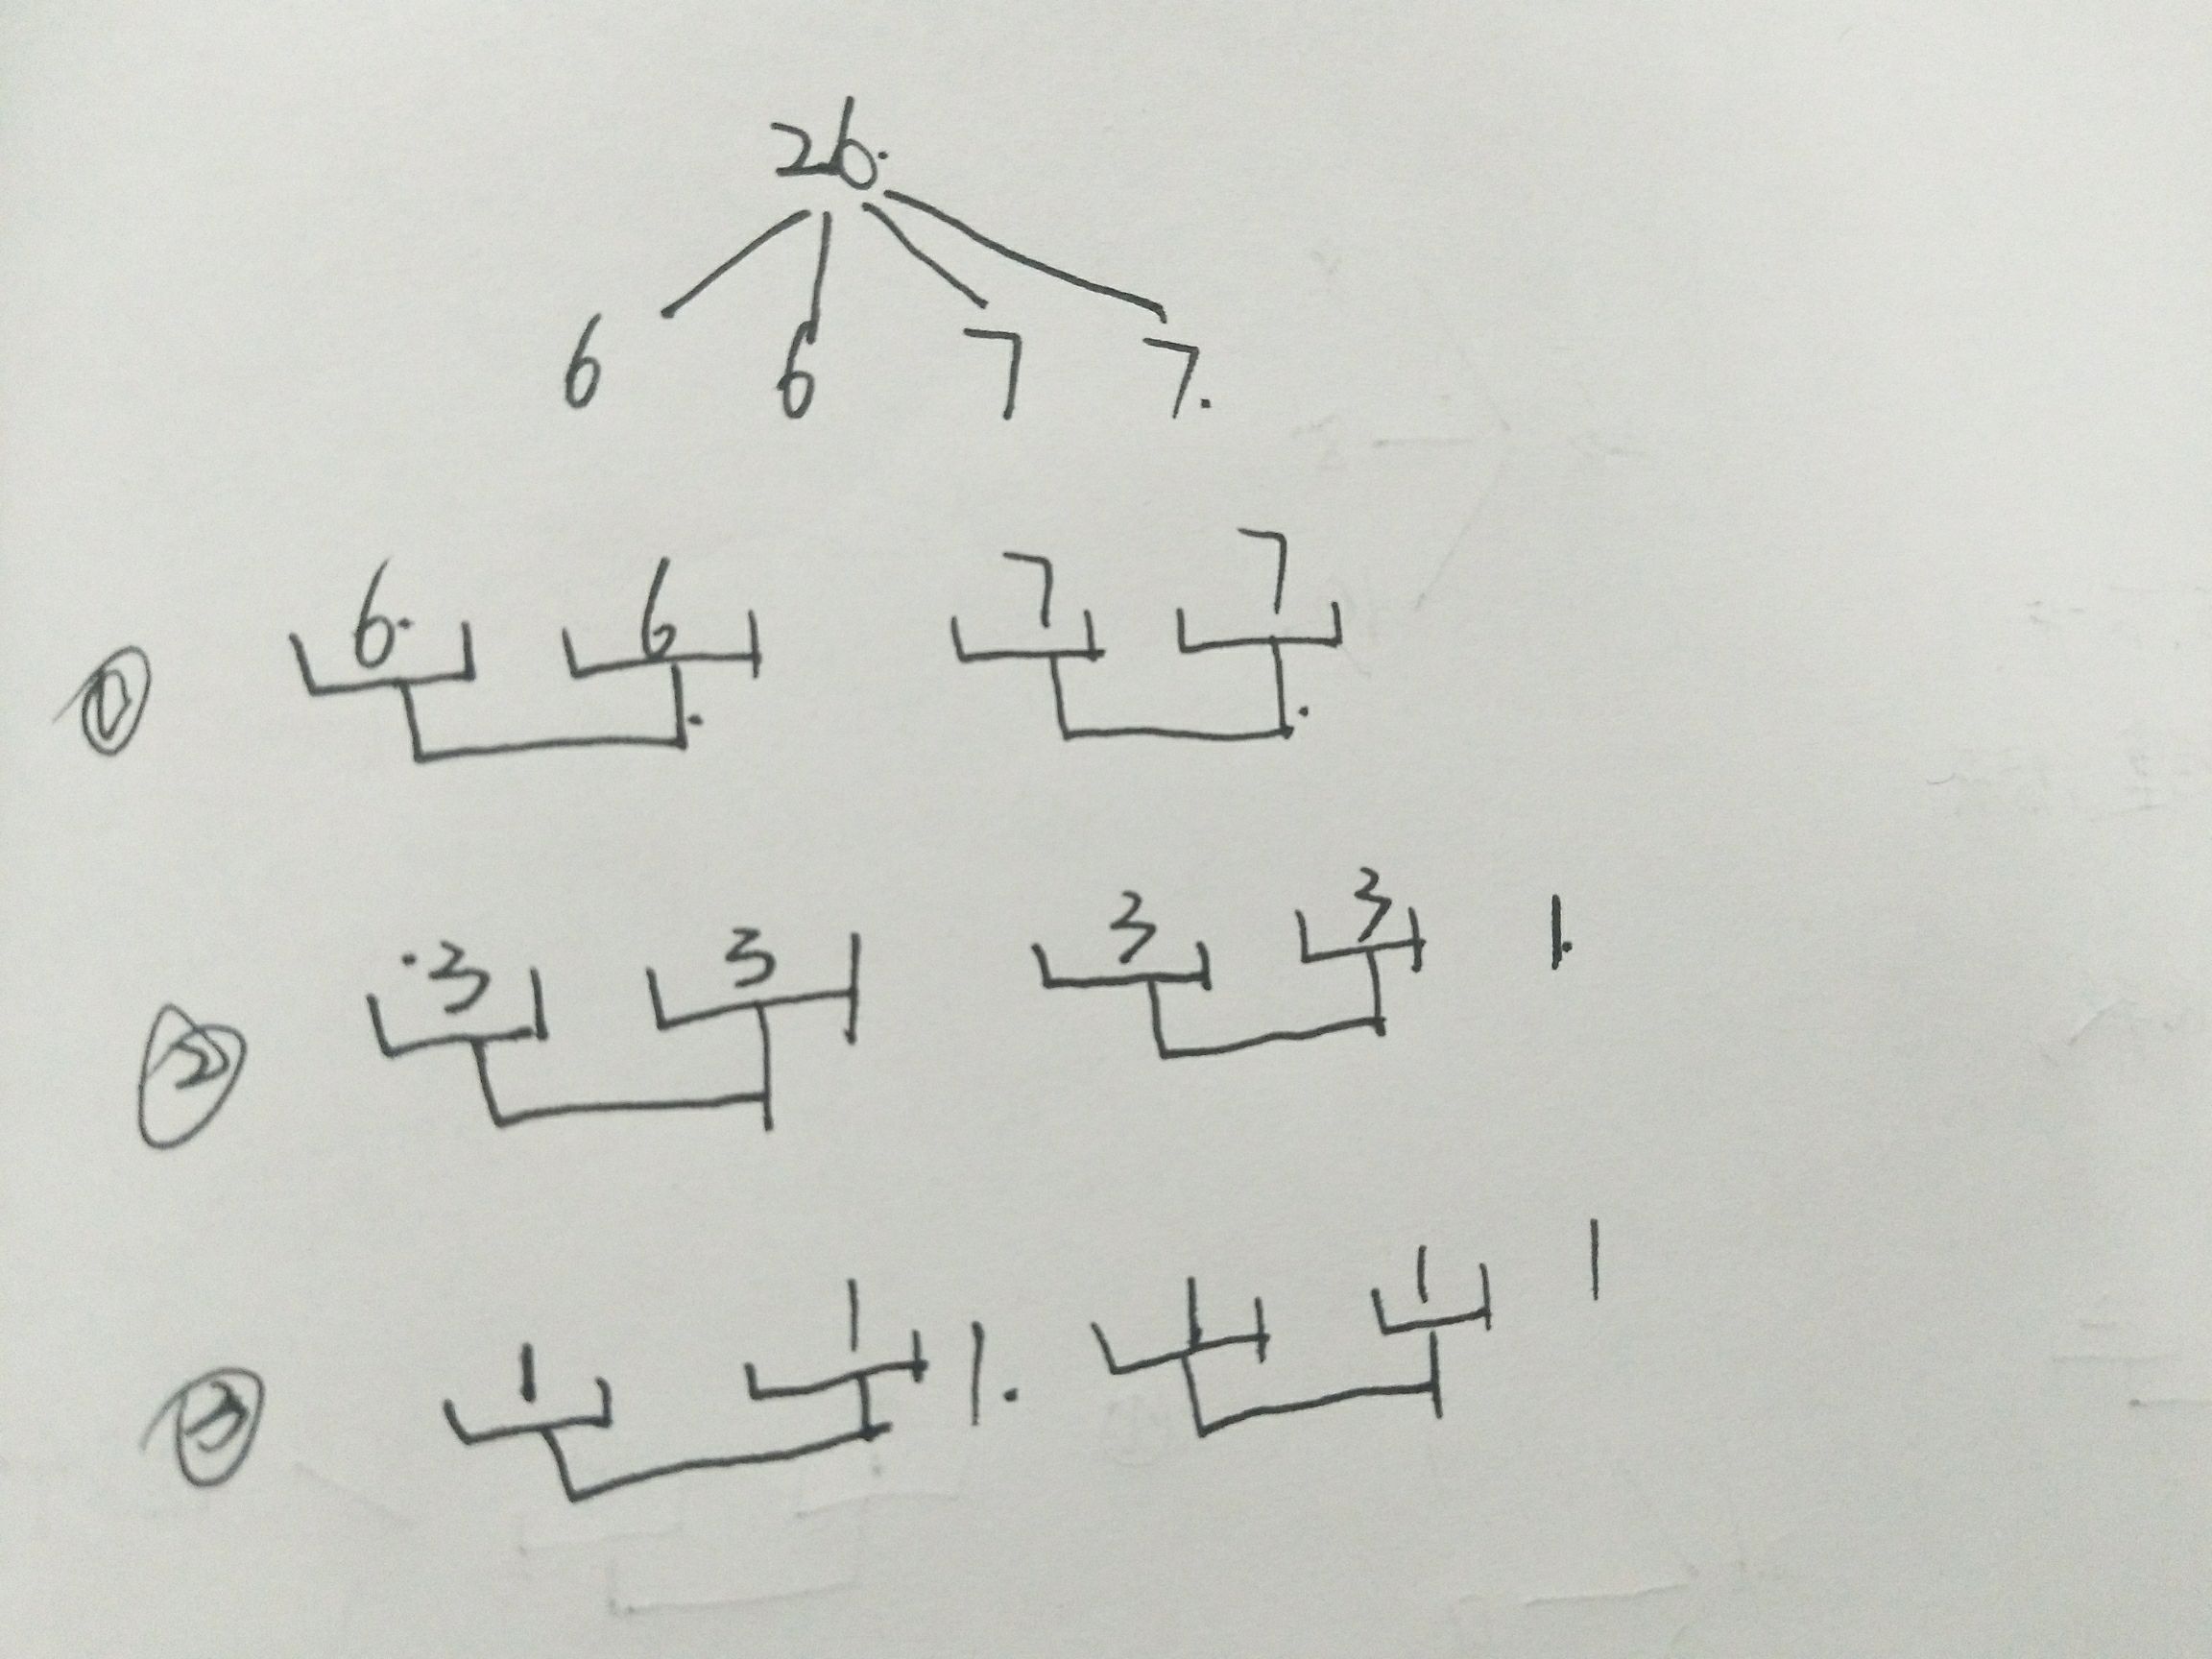 26.
6 6 7 7.
① 6. 6 7 7
② 3 3 3 3 1.
③ 1 1 1. 1 1 1